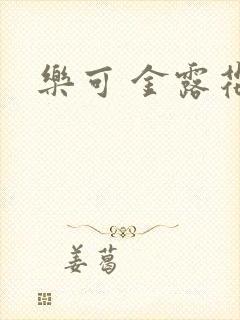 樂可 金露花
姜葛